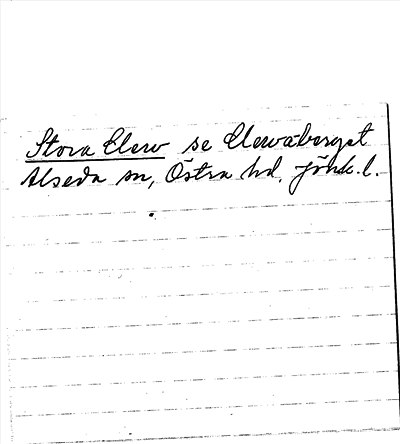 Stora Clew se Clewaberget
Alseda sn, Östra hd. Jönk. l.